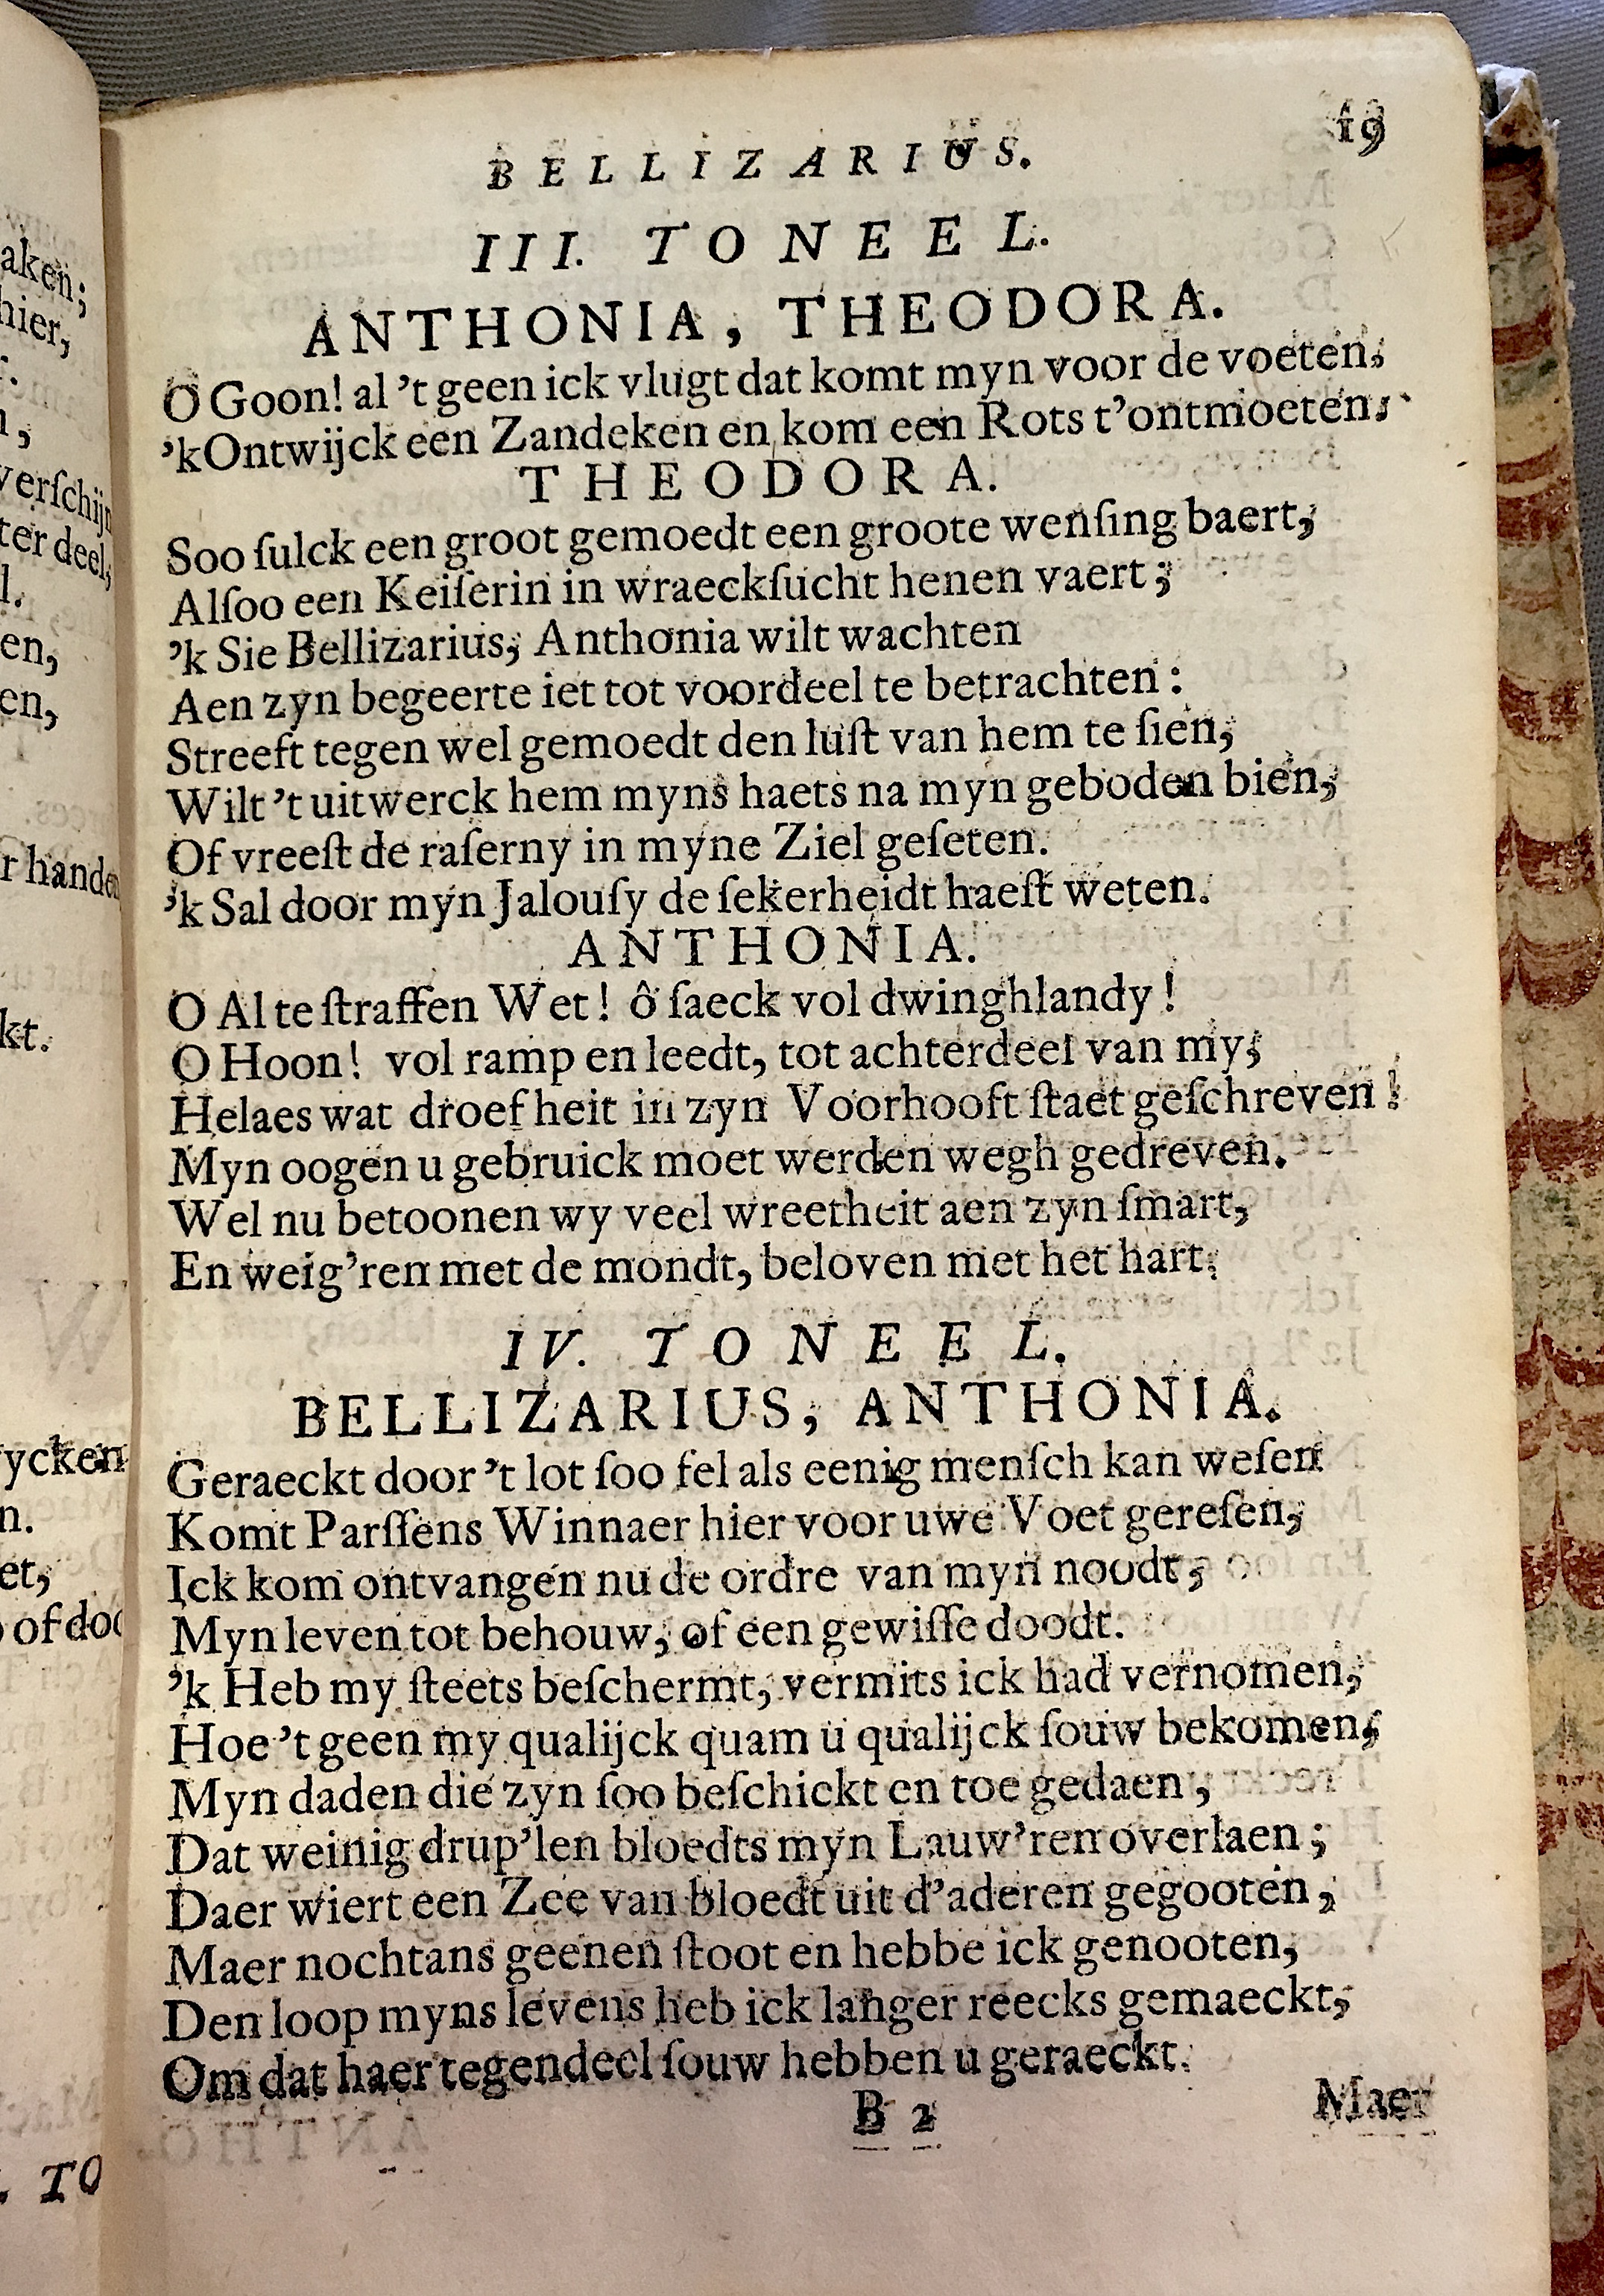 19
BELLIZARIUS.
III. TONEEL.
ANTHONIA, THEODORA.
O Goon! al 't geen ick vlugt dat komt myn voor de voeten;
'kOntwijck een Zandeken en kom een Rots t'ontmoeten.
THEODORA.
Soo ſulck een groot gemoedt een groote wenſing baert,
Alſoo een Keiſerin in wraeckſucht henen vaert;
'k Sie Bellizarius, Anthonia wilt wachten
Aen zyn begeerte iet tot voordeel te betrachten:
Streeft tegen wel gemoedt den luſt van hem te ſien,
Wilt 't uitwerck hem myns haets na myn geboden bien,
Of vreeſt de raſerny in myne Ziel geſeten.
'k Sal door myn Jalouſy de ſekerheidt haeſt weten.
ANTHONIA.
O Al te ſtraffen Wet! ô ſaeck vol dwinghlandy!
O Hoon! vol ramp en leedt, tot achterdeel van my;
Helaes wat droefheit in zyn Voorhooft ſtaet geſchreven!
Myn oogen u gebruick moet werden wegh gedreven.
Wel nu betoonen wy veel wreetheit aen zyn ſmart,
En weig'ren met de mondt, beloven met het hart.
IV. TONEEL.
BELLIZARIUS, ANTHONIA.
Geraeckt door 't lot ſoo fel als eenig menſch kan weſen
Komt Parſſens Winnaer hier voor uwe Voet gereſen,
Ick kom ontvangen nu de ordre van myn noodt,
Myn leven tot behouw, of een gewiſſe doodt.
'k Heb my ſteets beſchermt, vermits ick had vernomen,
Hoe 't geen my qualijck quam u qualijck ſouw bekomen,
Myn daden die zyn ſoo beſchickt en toe gedaen,
Dat weinig drup'len bloedts myn Lauw'ren overlaen;
Daer wiert een Zee van bloedt uit d'aderen gegooten,
Maer nochtans geenen ſtoot en hebbe ick genooten,
Den loop myns levens heb ick langer reecks gemaeckt,
Om dat haer tegendeel ſouw hebben u geraeckt.
B 2
Maer